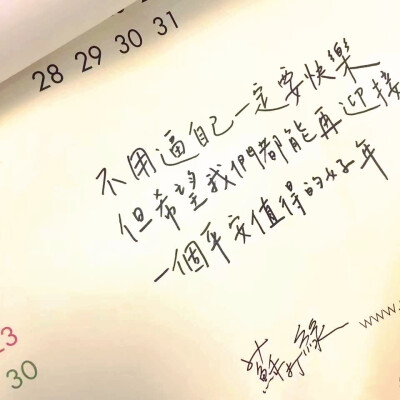 28 29 30 31
不用逼自己一定要快樂
但希望我們都能再迎接
一個平安值得的好年
蘇打綠
www.
23
30